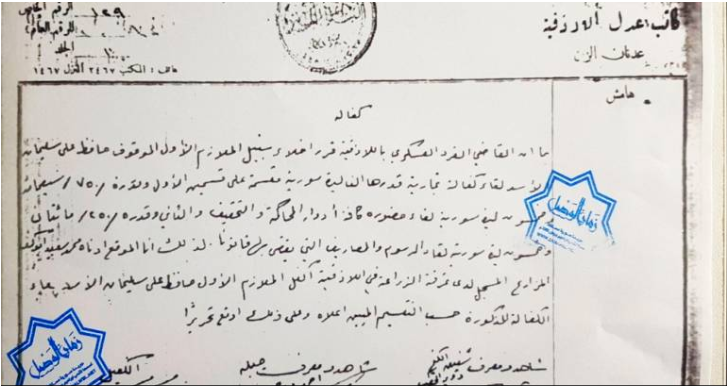 كاتب عدل اللاذقية
عدنان الزين
الرقم الخاص ١٢٩
الرقم العام
الجلد
هاتف : المكتب ٢٤٦٧ المنزل ١٤٦٧
هامش
كفالة
بما ان القاضي الفرد العسكري باللاذقية قرر اخلاء سبيل الملازم الأول الموقوف حافظ علي سليمان
الأسد لقاء كفالة تجارية قدرها الفا ليرة سورية مقسمة على قسمين الأول وقدره /٧٥٠/ سبعمائة
وخمسون ليرة سورية لقاء حضوره كافة أدوار المحاكمة و التحقيق و الثاني وقدره /٢٥٠/ مائتان
وخمسون ليرة سورية لقاء الرسوم والمصاريف التي يقضى بها قانونا . لذلك انا الموقع ادناه محمد سعيد
المزارع المسجل لدى غرفة الزراعة في اللاذقية أكفل الملازم الأول حافظ علي سليمان الأسد
الكفالة المذكورة حسب التقسيم المبين اعلاه وعلى ذلك اوقع تحريرا
الكفيل شاهد ومعرف شاهد ومعرف
زمان الوصل
زمان الوصل